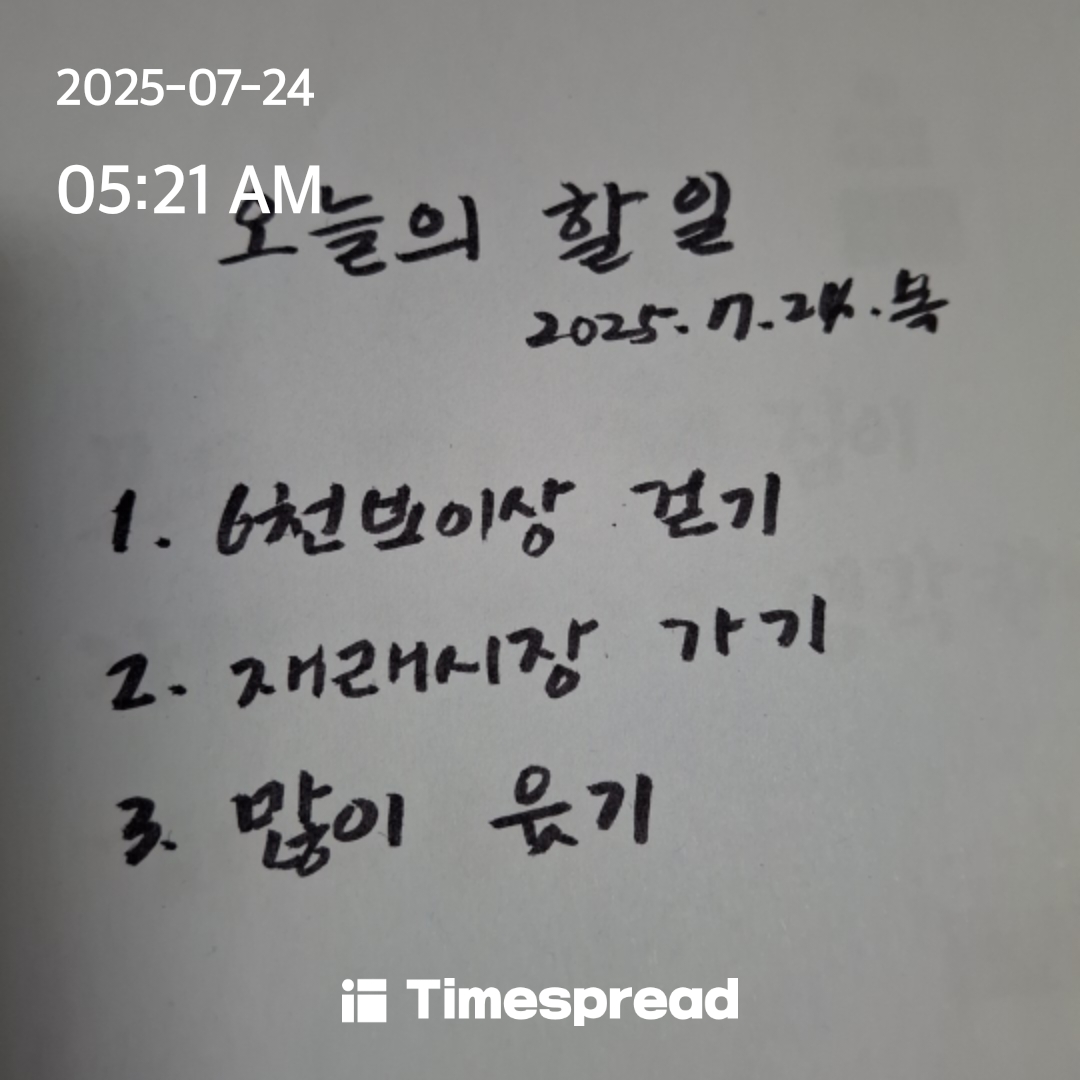 2025-07-24
05:21 AM
오늘의 할일
2025. 7. 24. 목
1. 6천보이상 걷기
2. 재래시장 가기
3. 많이 웃기
Timespread